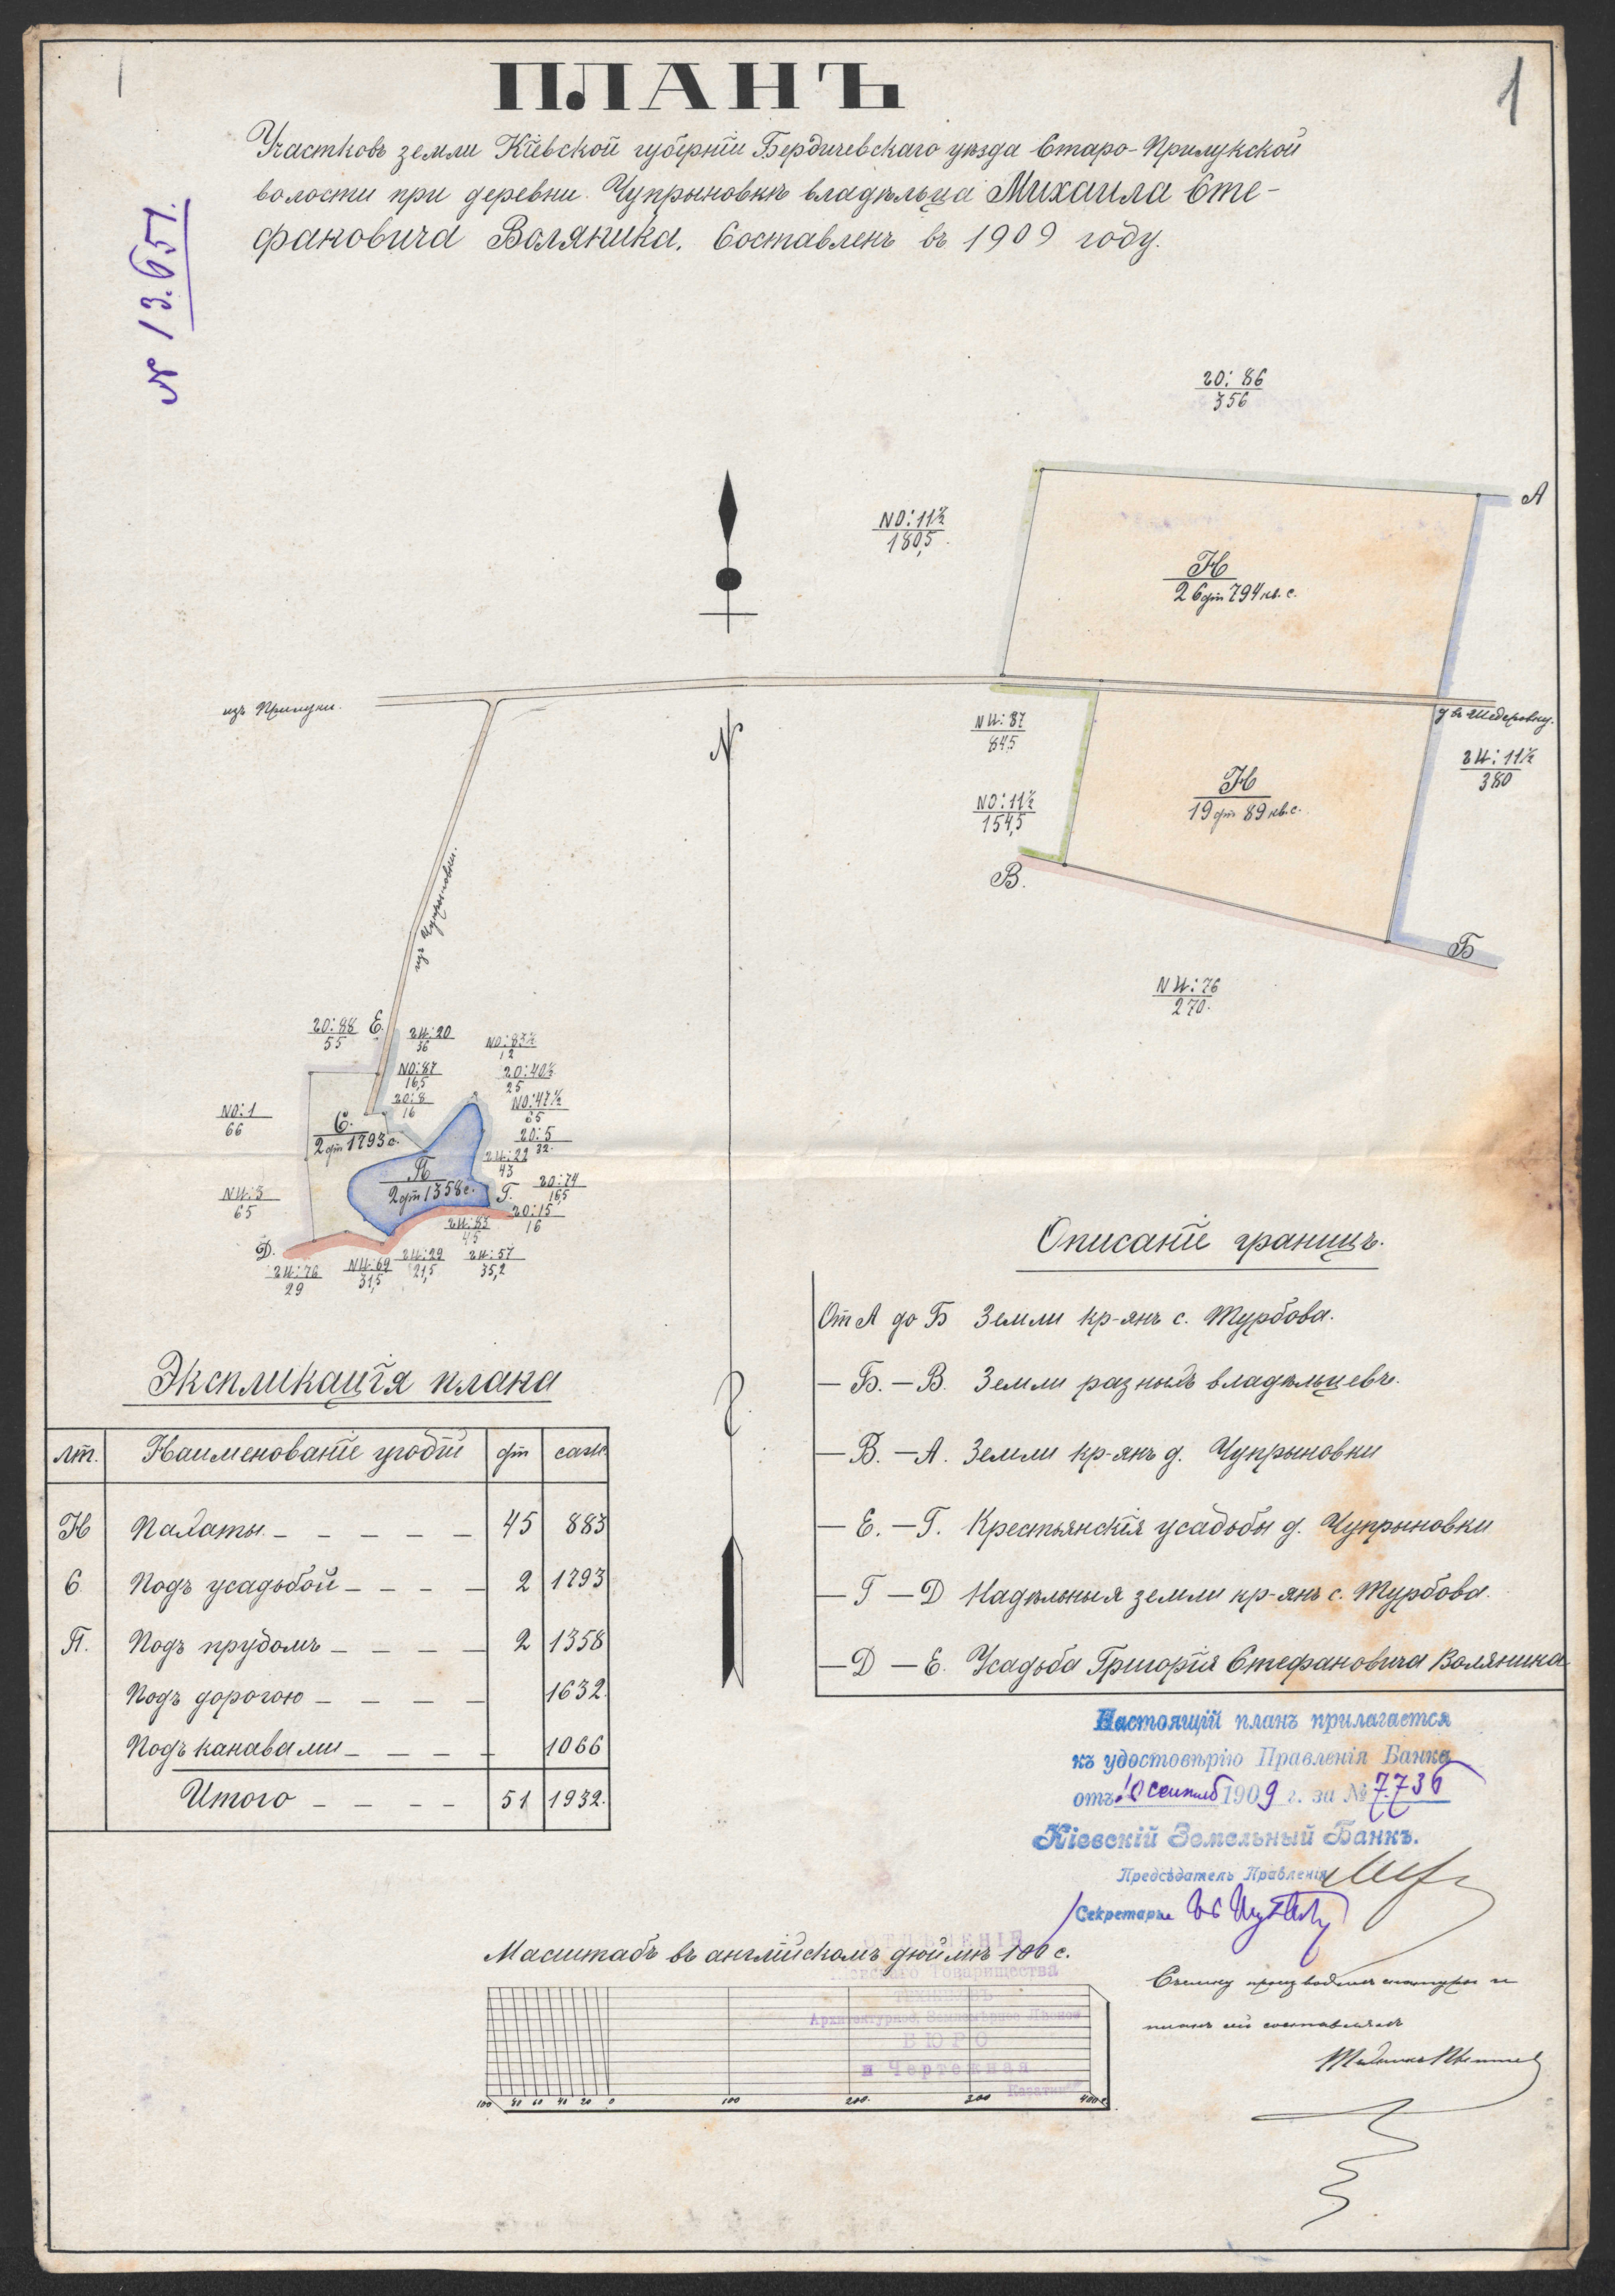 1
ПЛАНЪ
Участковъ земли Кіевской губерніи Бердичевскаго уѣзда Старо-Прилукской
волости при деревни Чупрыновкѣ владѣльца Михаила Сте-
фановича Воляника. Составленъ въ 1909 году.
№ 13.651.
20: 86
356
А
NO: 11½
180,5
Н
26 дт 794 кв. с.
изъ Прилуки.
въ Шедеровку.
N
NW: 87
84,5
ЗW: 11½
380
Н
19 дт 89 кв. с.
NO: 11½
154,5
В.
Б
NW: 76
270.
изъ Чупрыновки.
ЗО: 88
55
Е.
ЗW: 20
36
NO: 83½
12
NO: 87
16,5
ЗО: 40½
25
ЗО: 8
16
NO: 47½
65
NO: 1
66
С.
2 дт 1793 с.
ЗО: 5
32.
ЗW: 22
43
П
2 дт 1358 с.
ЗО: 74
16,5
Г.
NW: 3
65
ЗО: 15
16
ЗW: 83
45
Д.
ЗW: 76
29
NW: 69
31,5
ЗW: 29
21,5
ЗW: 57
35,2
Описаніе границъ.
От А до Б Земли кр-янъ с. Турбова.
— Б. — В. Земли разныхъ владѣльцевъ.
— В. — А. Земли кр-янъ д. Чупрыновки
— Е. — Г. Крестьянскія усадьбы д. Чупрыновки
— Г — Д Надѣльныя земли кр-янъ с. Турбова.
— Д — Е. Усадьба Григорія Стефановича Воляника
Экспликація плана
Лт. Наименованіе угодій дт саж.
Н Пахаты. — — — — — 45 883
С Подъ усадьбой — — — — 2 1793
П. Подъ прудомъ — — — — 2 1358
Подъ дорогою — — — — 1632.
Подъ канавами — — — — 1066
Итого — — — — 51 1932.
Настоящій планъ прилагается
къ удостовѣрію Правленія Банка
отъ 10 сентяб 1909 г. за № 7.736
Кіевскій Земельный Банкъ.
Предсѣдатель Правленія
Секретарь
Масштабъ въ англійскомъ дюймѣ 100 с.
ОТДѢЛЕНІЕ
Товарищества
БЮРО
и Чертежная
100 80 60 40 20 0 100 200. 300 400 с
Съемку производилъ съ натуры и
планъ сей составлялъ